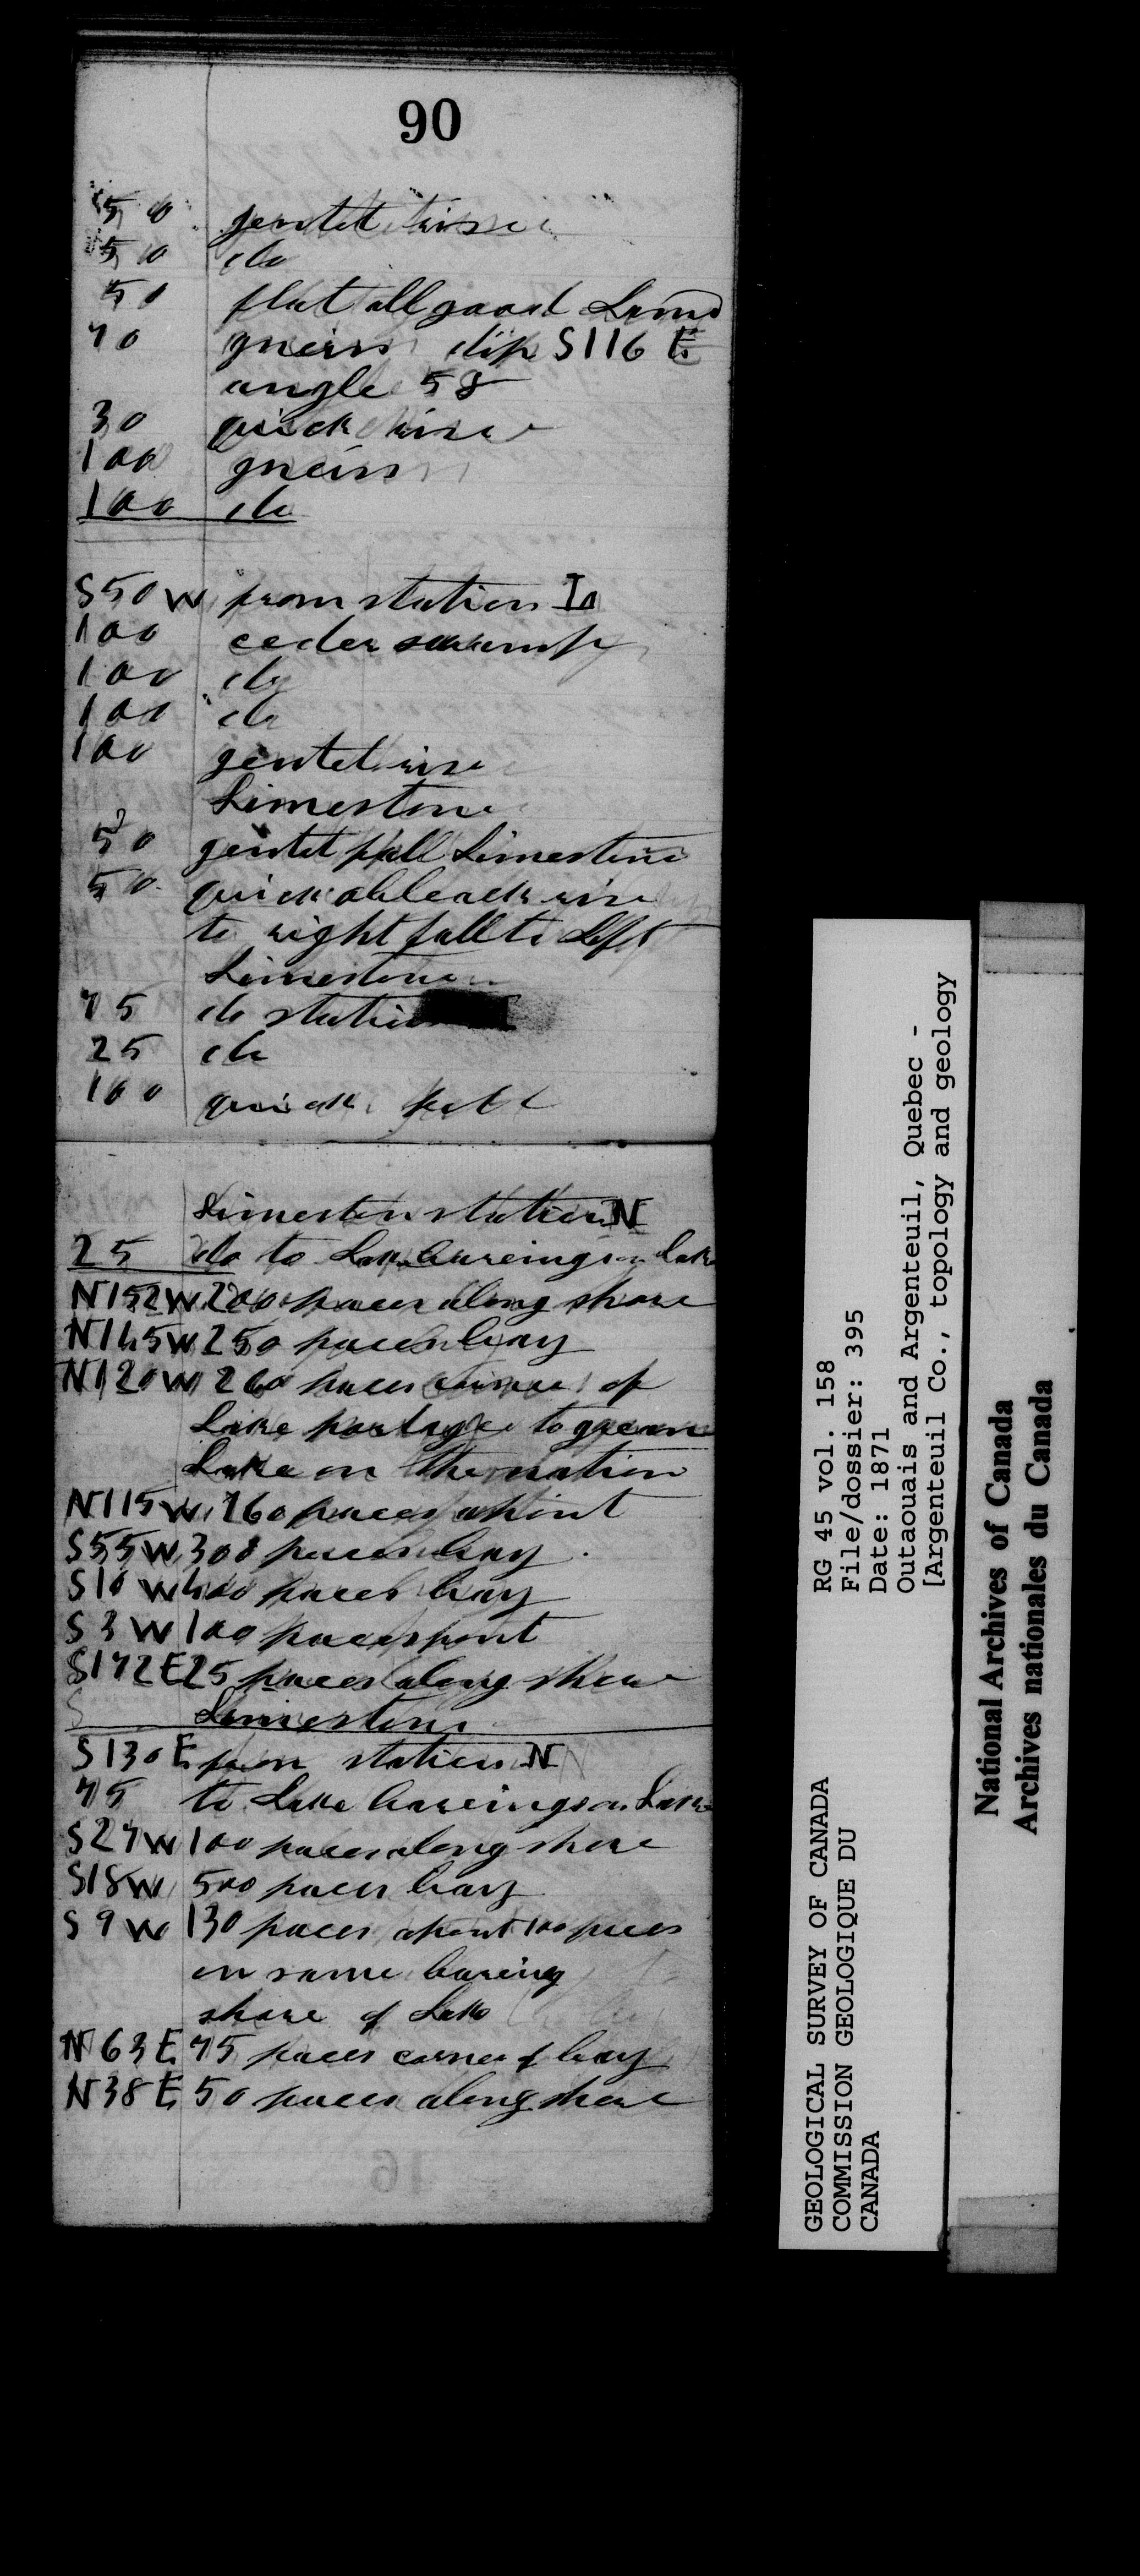 90
50 gentel rise
50 do
50 flat all good Land
70 gneiss dip S116 E
angle 58
30 quick rise
100 gneiss
100 do
S50W from station
100 ceder swamp
100 do
100 do
100 gentel rise
Limestone
50 gentel fall Limestone
50 quick rise
to right fall to Left
Limestone
75 do station
25 do
100 quick fall
Limeston station N
25 do to Lake bareings on Lake
N152W 200 paces along shore
N145W 250 paces bay
N120W 260 paces corner of
Lake portage to green
Lake on the nation
N115W 160 paces apoint
S55W 300 paces bay
S10W 400 paces bay
S3W 100 paces point
S172E 25 paces along shore
Limestone
S130E from station N
75 to Lake bareings on Lake
S27W 100 paces along shore
S18W 500 paces bay
S9W 130 paces apoint 100 paces
on same bareing
shore of Lake
N63E 75 paces corner of bay
N38E 50 paces along shore
GEOLOGICAL SURVEY OF CANADA
COMMISSION GEOLOGIQUE DU
CANADA
RG 45 vol. 158
File/dossier: 395
Date: 1871
Outaouais and Argenteuil, Quebec -
[Argenteuil Co., topology and geology
National Archives of Canada
Archives nationales du Canada